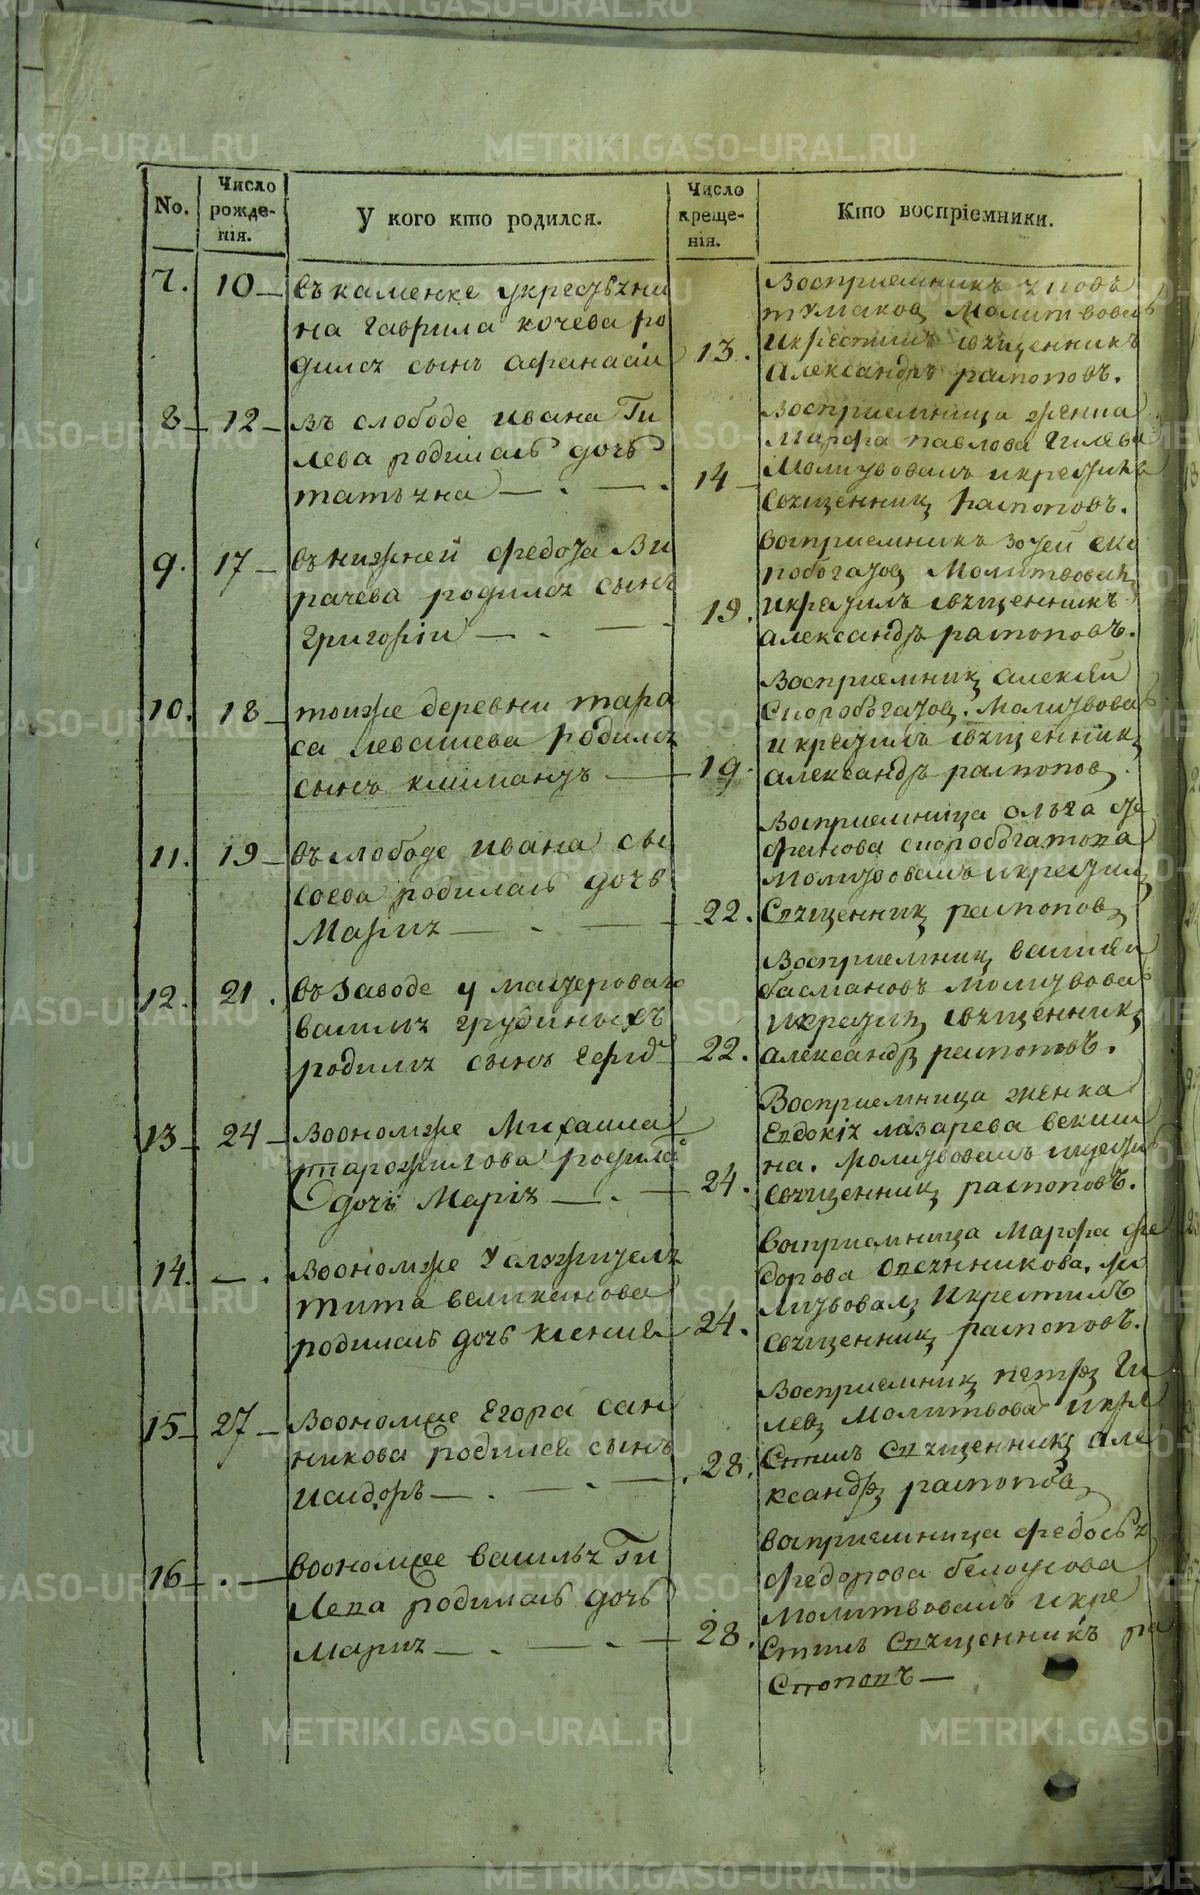 No.
Число рожде-нія.
У кого кто родился.
Число креще-нія.
Кто воспріемники.
7. 10 —
въ каменке укрестьяни
на гаврила кочева ро
дился сынъ афанасiи
13.
Восприемникъ
Молитвовалъ
икрестилъ священникъ
александръ распоповъ.
8 — 12 —
въ слободе ивана Ги
лева родилась дочь
татьяна — . — .
14 —
Восприемница женка
Марфа павлова Гилева
Молитвовалъ икрестилъ
священникъ распоповъ.
9. 17 —
въ нижней федота Ви
рачева родился сынъ
григорiи — . — .
19.
восприемникъ зотей ско
робогатовъ Молитвовалъ
икрестилъ священникъ
александръ распоповъ.
10. 18 —
тоиже деревни тара
са левашева родился
сынъ климантъ —
19.
Восприемникъ алексей
Скоробогатовъ. Молитвовалъ
икрестилъ священникъ
александръ распоповъ.
11. 19 —
въ слободе ивана сы
соева родилась дочь
Мария — . —
22.
Восприемница ольга сте
фанова скоробогатова
Молитвовалъ икрестилъ
Священникъ распоповъ
12. 21.
въ Заводе у мастероваго
василья грудиныхъ
родился сынъ
22.
Восприемникъ василеи
басмановъ молитвовалъ
икрестилъ священникъ
александръ распоповъ.
13 — 24 —
воономже Михаила
старожилова родилась
дочь Марiя — . —
24.
Восприемница женка
Евдокiя лазарева векши
на. Молитвовалъ икрестилъ
священникъ распоповъ.
14. — .
воономже Услужителя
тита великанова
родилась дочь ксения
24.
восприемница Марфа фе
дорова овчинникова. мо
литвовалъ Икрестилъ
священникъ распоповъ.
15 — 27 —
воономже Егора сан
никова родился сынъ
исидоръ — . — . —
28.
Восприемникъ петръ Ги
левъ Молитвовалъ икре
стилъ Священникъ але
ксандръ распоповъ
16 — . —
воономже василья Ги
лева родилась дочь
Мария — . — . —
28.
восприемница федосья
федорова белоусова
Молитвовалъ икре
стилъ Священникъ ра
споповъ —
METRIKI.GASO-URAL.RU